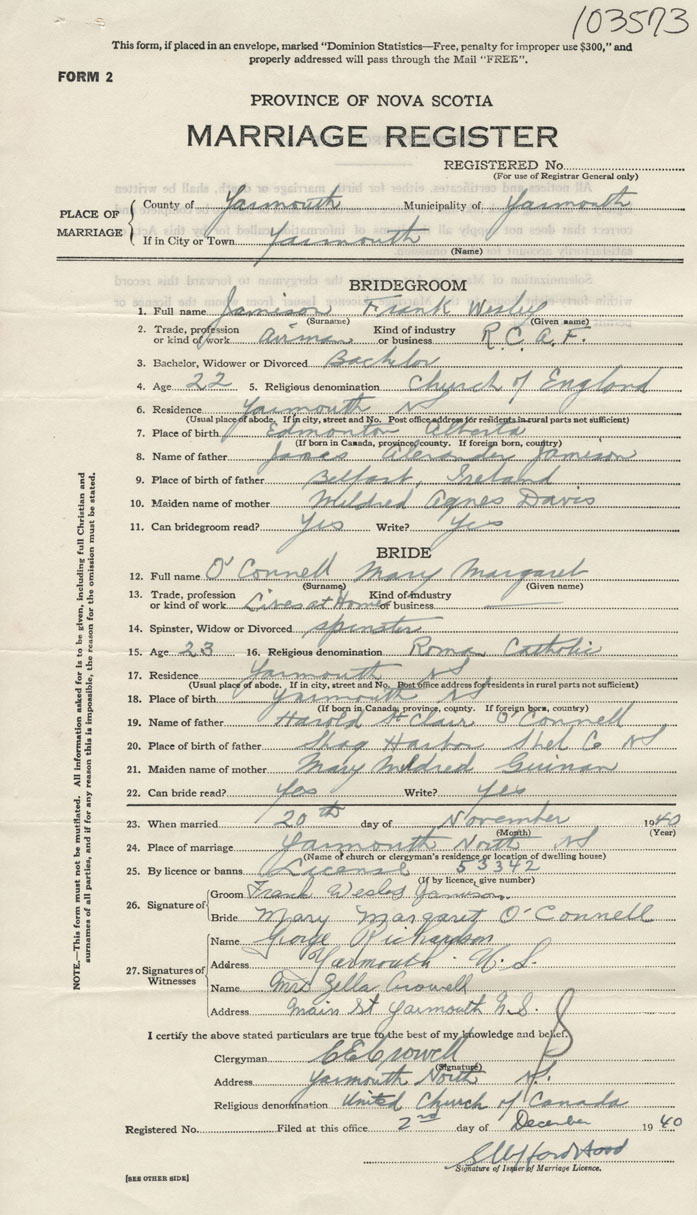 103573
This form, if placed in an envelope, marked "Dominion Statistics—Free, penalty for improper use $300," and
properly addressed will pass through the Mail "FREE".
FORM 2
PROVINCE OF NOVA SCOTIA
MARRIAGE REGISTER
REGISTERED No.
(For use of Registrar General only)
PLACE OF MARRIAGE
County of Yarmouth Municipality of Yarmouth
If in City or Town Yarmouth
(Name)
BRIDEGROOM
1. Full name Jamieson Frank Wesley
(Surname) (Given name)
2. Trade, profession or kind of work Airman Kind of industry or business R.C.A.F.
3. Bachelor, Widower or Divorced Bachelor
4. Age 22 5. Religious denomination Church of England
6. Residence Yarmouth NS
(Usual place of abode. If in city, street and No. Post office address for residents in rural parts not sufficient)
7. Place of birth Edmonton Alberta
(If born in Canada, province, county. If foreign born, country)
8. Name of father James Alexander Jamieson
9. Place of birth of father Belfast, Ireland
10. Maiden name of mother Mildred Agnes Davis
11. Can bridegroom read? Yes Write? Yes
BRIDE
12. Full name O'Connell Mary Margaret
(Surname) (Given name)
13. Trade, profession or kind of work Lives at Home Kind of industry of business —
14. Spinster, Widow or Divorced spinster
15. Age 23 16. Religious denomination Roman Catholic
17. Residence Yarmouth NS
(Usual place of abode. If in city, street and No. Post office address for residents in rural parts not sufficient)
18. Place of birth Yarmouth NS
(If born in Canada, province, county. If foreign born, country)
19. Name of father Harold St Clair O'Connell
20. Place of birth of father Shag Harbor Shel Co NS
21. Maiden name of mother Mary Mildred Guinan
22. Can bride read? Yes Write? Yes
23. When married 20th day of November 1940
(Month) (Year)
24. Place of marriage Yarmouth North NS
(Name of church or clergyman's residence or location of dwelling house)
25. By licence or banns License 53342
(If by licence, give number)
26. Signature of
Groom Frank Wesley Jamieson
Bride Mary Margaret O'Connell
27. Signatures of Witnesses
Name George Richardson
Address Yarmouth N.S.
Name Mrs Zella Crowell
Address Main St Yarmouth N.S.
I certify the above stated particulars are true to the best of my knowledge and belief.
Clergyman C E Crowell
(Signature)
Address Yarmouth North N.S.
Religious denomination United Church of Canada
Registered No. Filed at this office 2nd day of December 1940
Signature of Issuer of Marriage Licence.
[SEE OTHER SIDE]
NOTE.—This form must not be mutilated. All information asked for is to be given, including full Christian and
surnames of all parties, and if for any reason this is impossible, the reason for the omission must be stated.